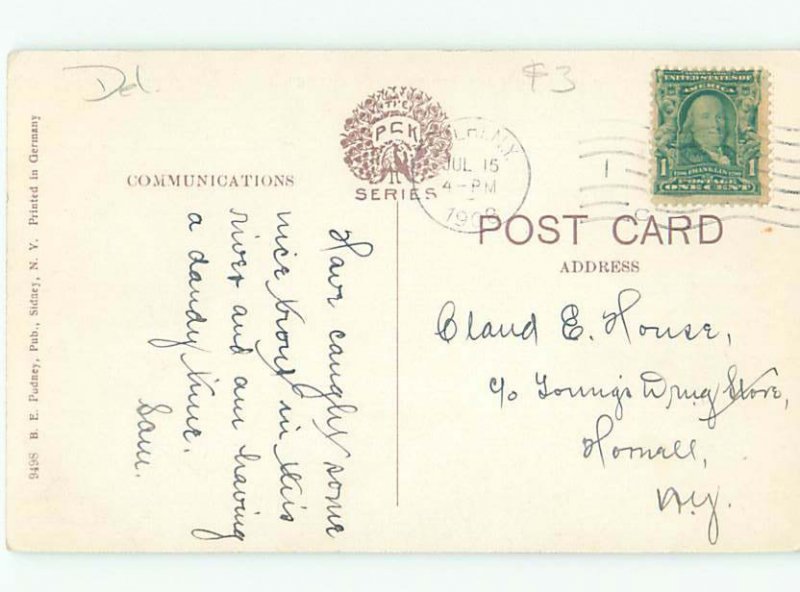 Del.
$3
9498 B. E. Pudney, Pub., Sidney, N. Y. Printed in Germany
THE
P C K
SERIES
COMMUNICATIONS
Have caught some
nice trout in this
river and am having
a dandy time.
Sam.
JUL 15
4-PM
190
SERIES 1902
UNITED STATES OF
AMERICA
1 FRANKLIN 1
POSTAGE
ONE CENT
POST CARD
ADDRESS
Claud E. House,
c/o Young's Drug Store,
Hornell,
N.Y.